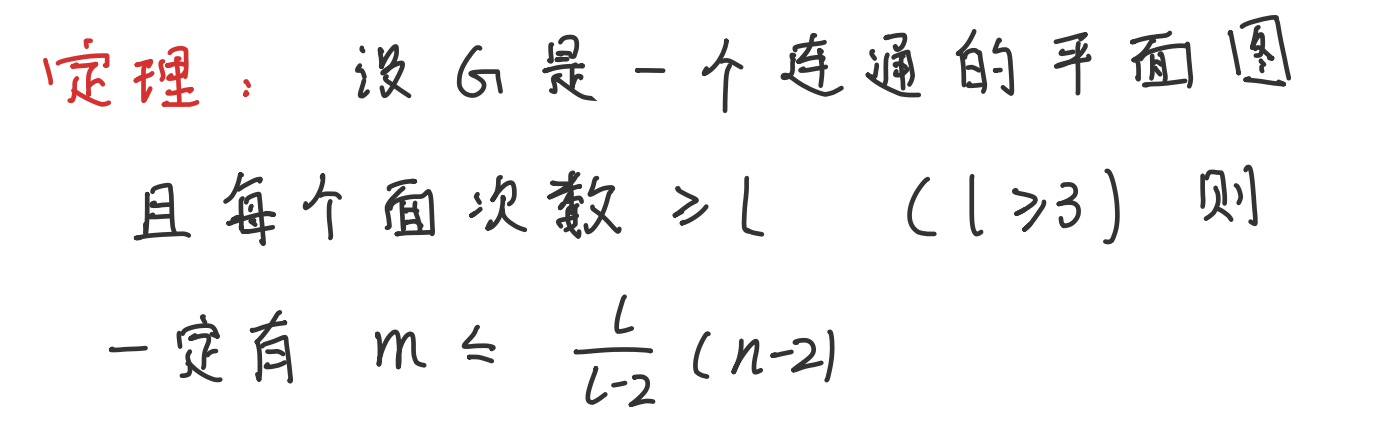 定理： 设 G 是一个连通的平面图
且每个面次数 ≥ l （l≥3）则
一定有 m ≤ \frac{l}{l-2} (n-2)